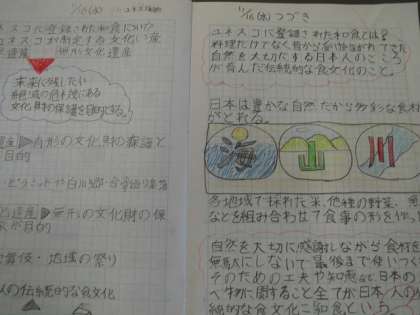 11/16(水)
ユネスコに登録された和食について
ユネスコが制定する文化い産
遺産 無形文化遺産
未来に残したい
絶滅の危機にある
文化財の保護を目的とする。
有形の文化財の保護と
目的
ピラミッドや白川郷・合掌造り集落
無形の文化財の保
が目的
歌舞伎・地域の祭り
人の伝統的な食文化
11/16(水) つづき
ユネスコに登録された和食とは
料理だけでなく昔から受け継がれてきた
自然を大切にする日本人のこころ
が育んだ伝統的な食文化のこと。
日本は豊かな自然だから多彩な食材
がとれる。
海 山 川
各地域で採れた米、他種の野菜、魚
などを組み合わせて食事の形を作っ
自然を大切に感謝しながら食材を
無駄にしないで最後まで使いつく
そのための工夫や知恵など日本の
べ物に関すること全てが日本人の
統的な食文化=和食という